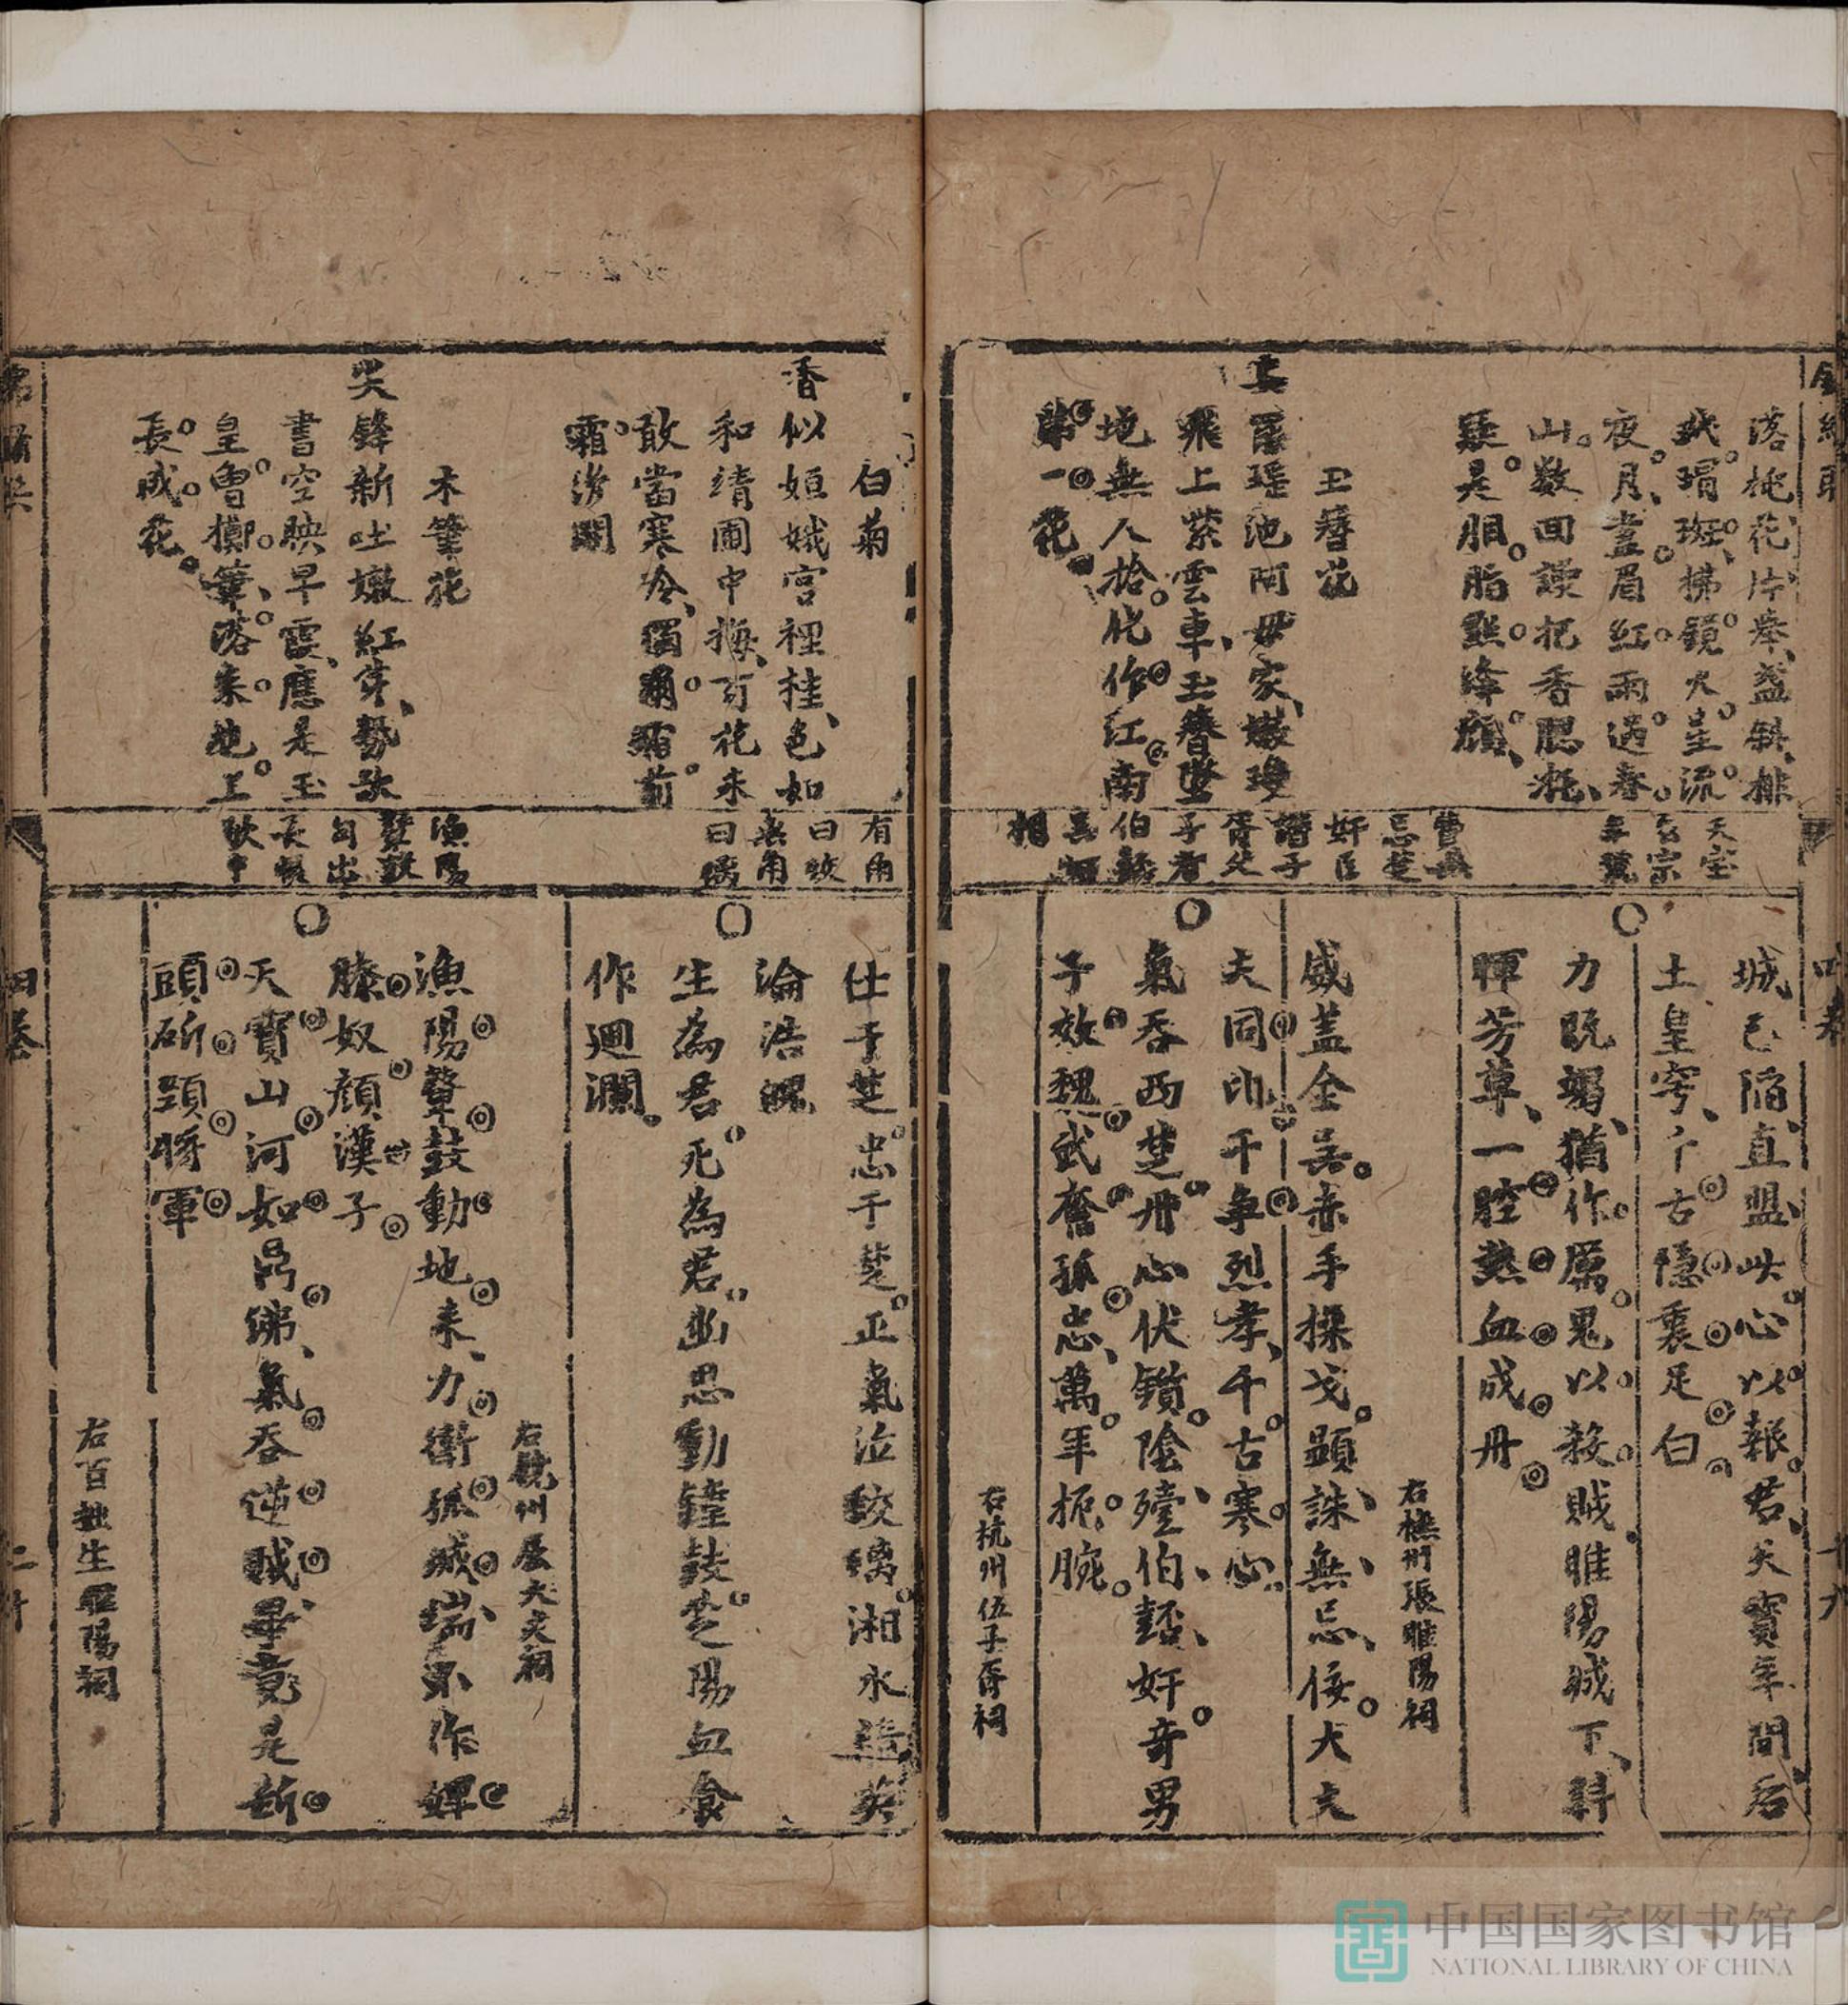 落梔花片奉盞斝排
玳瑁斑拂鏡火星流
夜月畫眉紅雨過春
山数回謖把香腮
疑是胭脂點絳顔
玉簪花
瑶池阿母家嫩瓊
飛上紫雲車玉簪墜
地無人拾化作江南
第一花
天宝
玄宗
年號
曹無
忌楚
奸臣
譖子
胥父
子者
伯嚭
吴
相
城已陷直盟此心以報君天寶年間后
土皇穹千古隱衷足白
力既竭猶作厲鬼以殺賊睢陽城下
暉芳草一腔熱血成丹
右 州張睢陽祠
威盖全吴赤手操戈顕誅無忌佞大夫
夫同仇干争烈孝千古寒心
氣吞西楚丹心伏鑕陰殪伯嚭奸奇男
子效魏武奮孤忠萬年扼腕
右杭州伍子胥祠
白菊
香似姮娥宮裡桂色如
和靖圃中梅百花未
敢當寒冷獨開霜前
霜後開
木筆花
尖鋒新吐嫩紅芽勢欲
書空映早霞應是玉
皇曾擲筆落来地上
長成花
有角
曰蛟
無角
曰螭
漁陽
鼙鼓
仕于楚忠于楚正氣泣蛟螭湘水
淪浩魄
生為君死為君幽思動鐘鼓楚陽血食
作廻瀾
右 州屈大夫祠
漁陽鼙鼓動地来力衛孤城端不作婢
膝奴顔漢子
天寶山河如昂 氣吞逆賊畢竟是斫
頭斫頸將軍
右百拙生睢陽祠
四卷